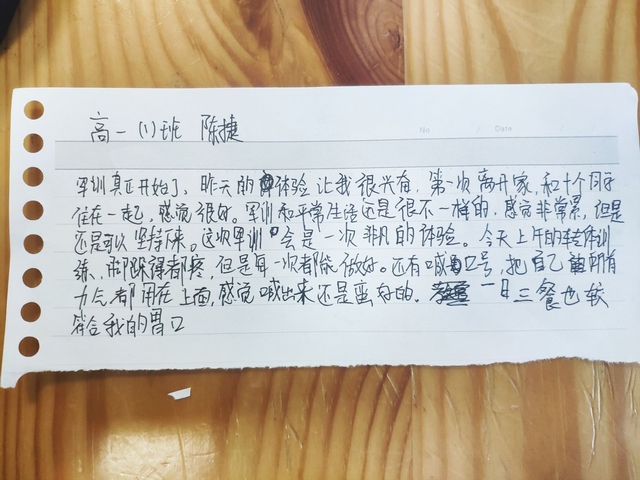 高一(1)班 陈捷
No / Date /
军训真正开始了、昨天的体验让我很兴奋，第一次离开家，和十个同学
住在一起，感觉很好。军训和平常生活还是很不一样的，感觉非常累，但是
还是可以坚持下来。这次军训会是一次非凡的体验。今天上午的转体训
练、脚跺得都疼，但是每一次都能做好。还有喊口号，把自己所有
力气都用在上面，感觉喊出来还是蛮好的。一日三餐也较
符合我的胃口